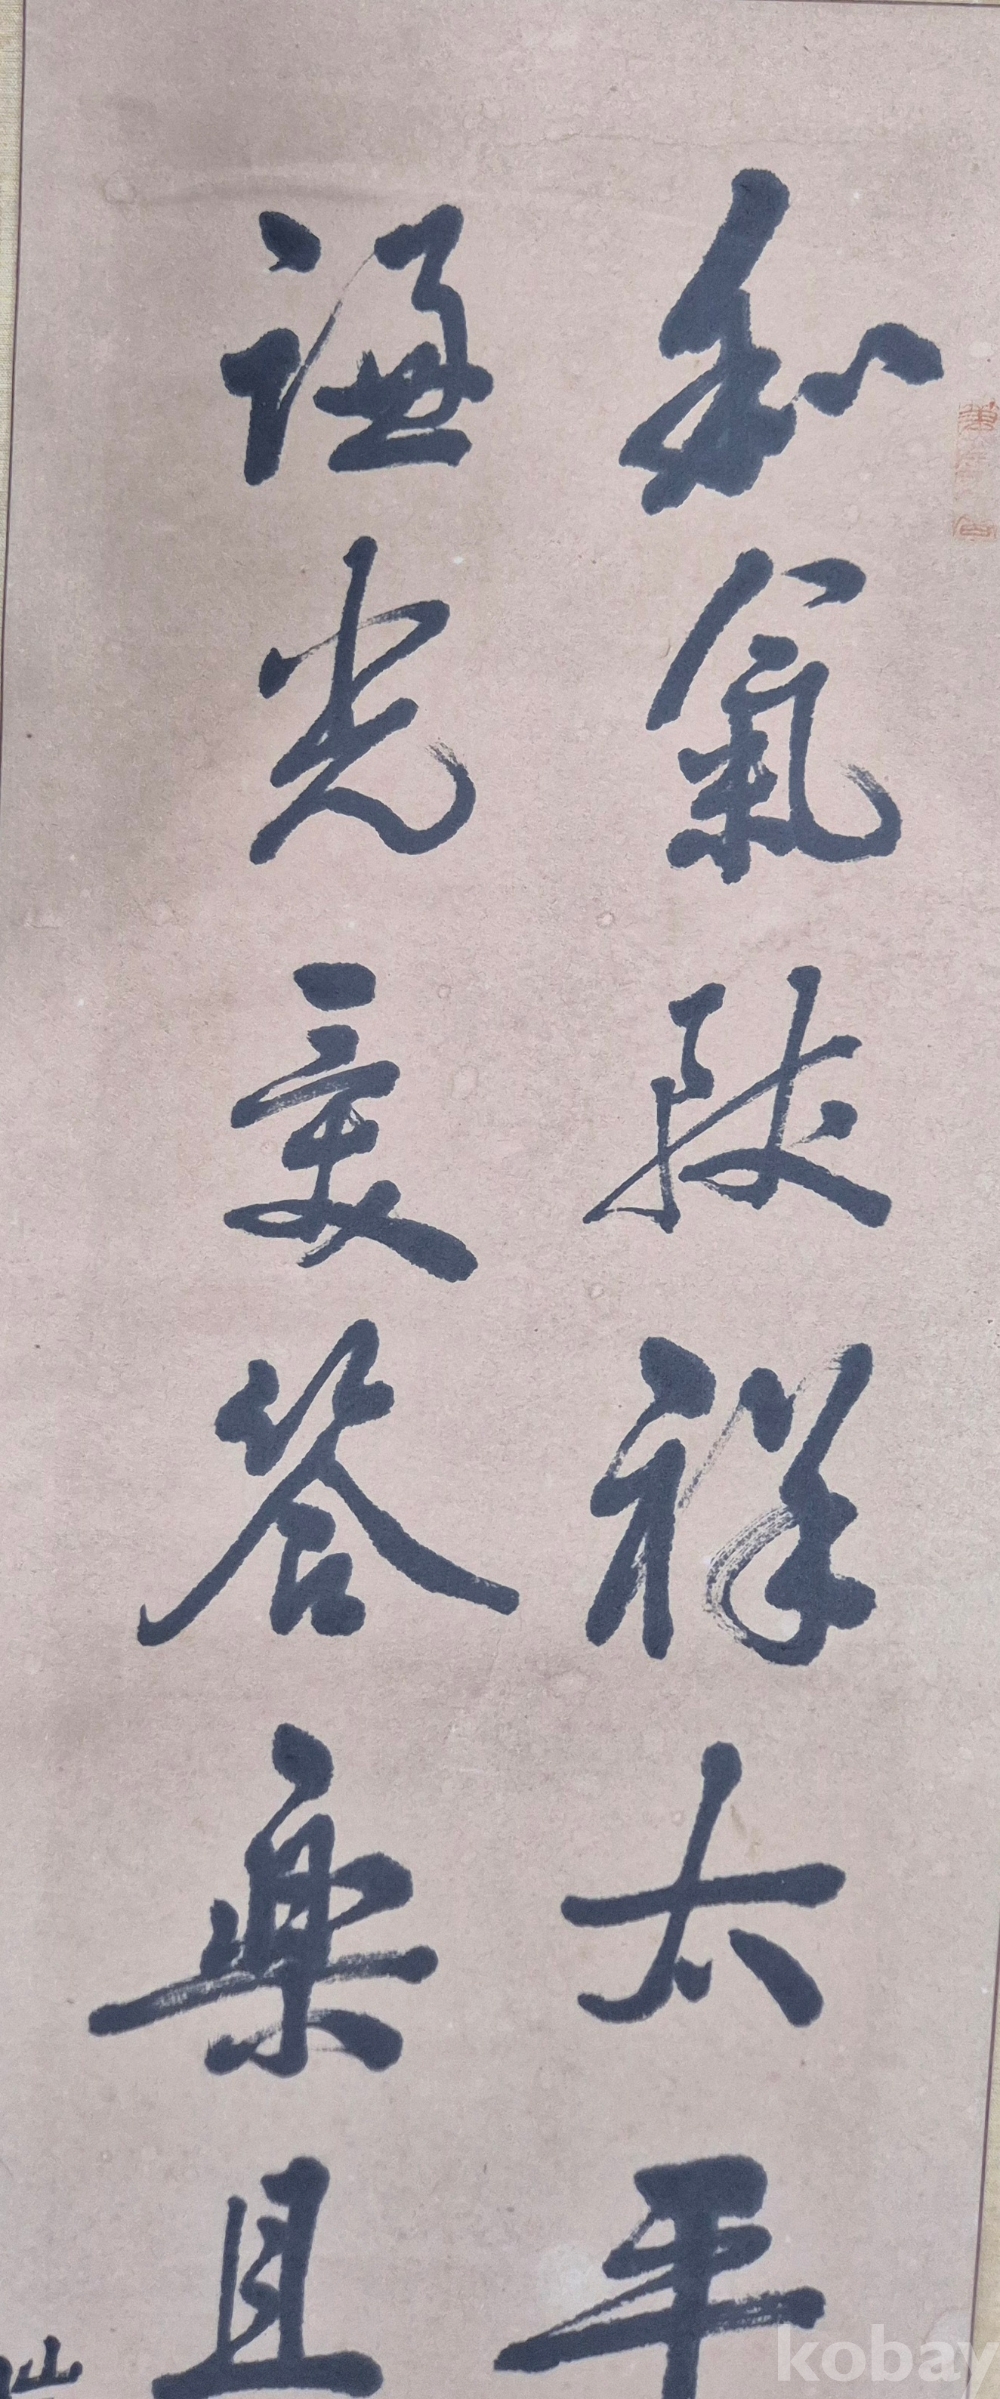 和氣致祥太平
謙光受答樂且
kobay